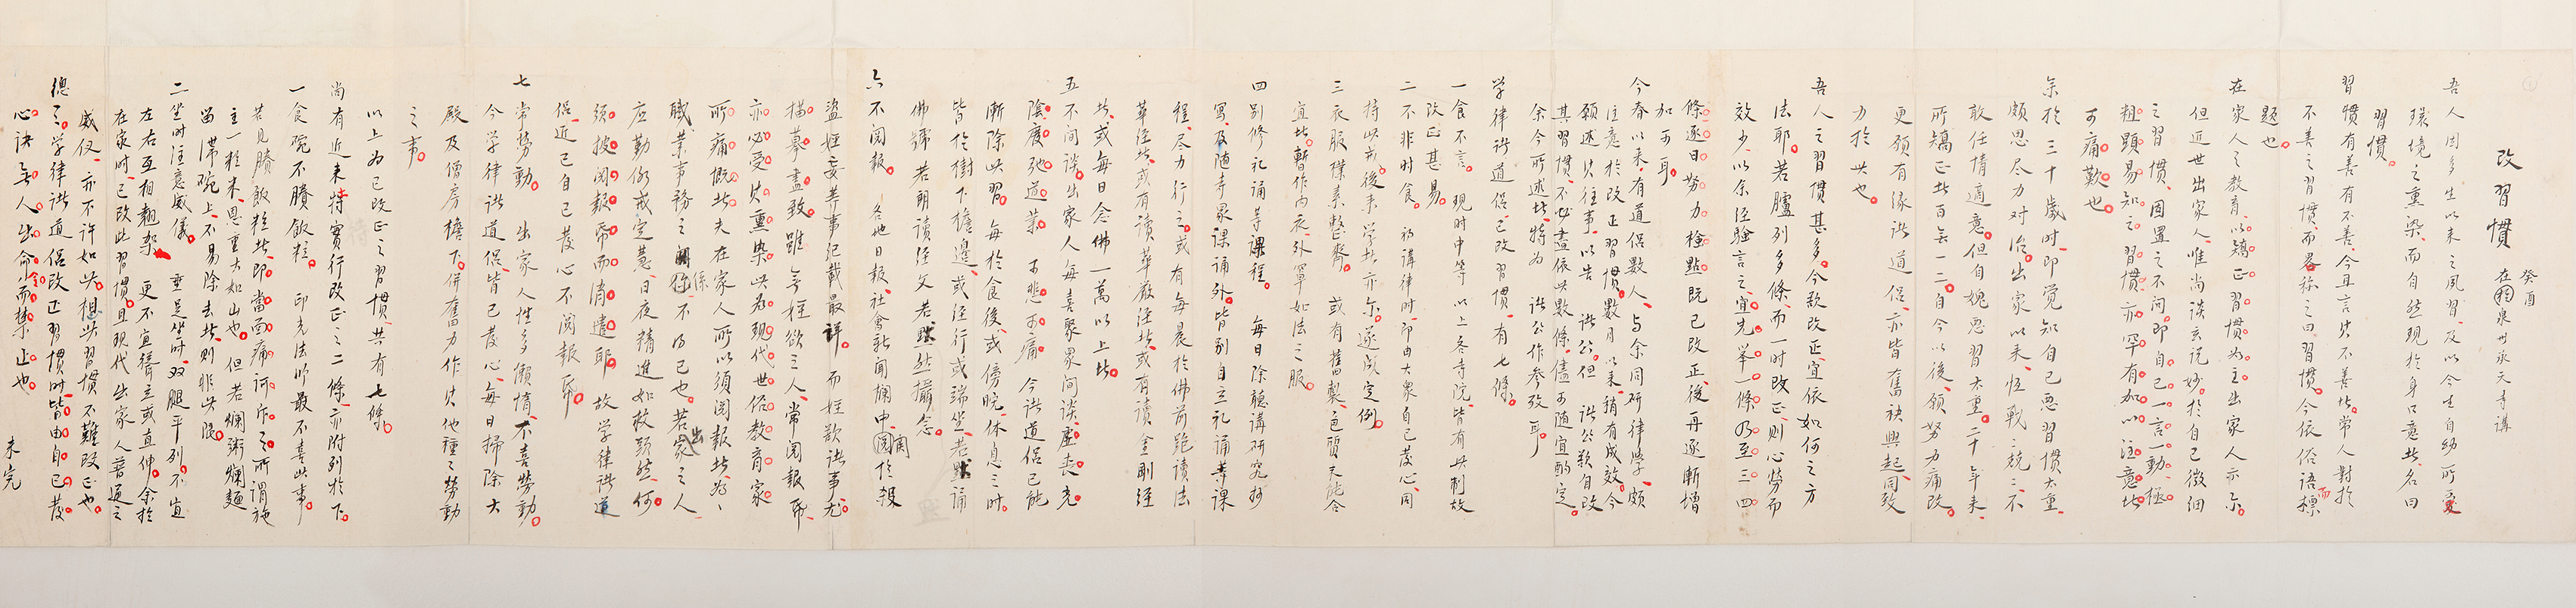 改習慣
癸酉
在泉州承天寺講
吾人因多生以來之夙習、及以今生自幼所受
環境之熏染、而自然現於身口者、名曰
習慣。
習慣有善有不善、今且言其不善者。常人對於
不善之習慣、而略稱之曰習慣。今依俗語而標
題也。
在家人之教育、以矯正習慣為主。出家人亦尒。
但近世出家人、唯尚談玄說妙。於自己微細
之習慣、固置之不問。即自己一言一動、極
粗顯易知之習慣、亦罕有加以注意者。
可痛歎也。
余於三十歲時、即覺知自己惡習慣太重、
頗思尽力对治。出家以来、恆戰戰兢兢、不
敢任情適意。但自愧惡習太重。二十年来、
所矯正者百無一二。自今以後、願努力痛改。
更願有緣諸道侶、亦皆奮袂興起、同致
力於此也。
吾人之習慣甚多。今欲改正、宜依如何之方
法耶。若臚列多條、而一时改正、則心勞而
效少、以余经驗言之、宜先举一條乃至三四
條、逐日努力檢點、既已改正、後再逐漸增
加可耳。
今春以来、有道侶數人、与余同研律學、頗
注意於改正習慣。數月以来、稍有成效、今
願述其往事、以告諸公。但諸公欲自改
其習慣、不必盡依此數條、儘可随宜酌定。
余今所述者、特為諸公作参攷耳。
学律諸道侶、已改習慣、有七條。
一食不言。現时中等以上各寺院、皆有此制、故
改正甚易。
二不非时食。初講律时、即由大眾自己發心、同
持此戒。後来学者亦尒。遂成定例。
三衣服樸素整齊。或有舊製、色質未能合
宜者、暫作内衣、外罩如法之服。
四别修礼誦等課程。每日除聽講研究抄
寫、及随寺眾課誦外、皆别自立礼誦等課
程、尽力行之。或有每晨於佛前跪讀法
華经者、或有讀華嚴经者、或有讀金剛经
者、或每日念佛一萬以上者。
五不闲谈。出家人每喜聚眾闲談、虛丧光
陰、廢弛道業、可悲可痛。今諸道侶已能
漸除此習。每於食後、或傍晚、休息之时、
皆於樹下檐邊、或经行、或端坐、若默誦
佛號、若朗讀经文、若默然攝念。
六不閲報。各地日報、社會新聞欄中、関於殺
盜婬妄等事、記載最详。而婬欲諸事、尤
描摹盡致。雖無婬欲之人、常閲報帋、
亦必受其熏染、此為現代世俗教育家
所痛慨者。夫在家人所以須閲報者、为
職業事務之関係、不得已也。若出家之人、
应勤修戒定慧、日夜精進、如救頭然、何
須披閲報帋而消遣耶。故学律諸道
侶、近已自己發心不閲報帋。
七常勞動。出家人性多懶惰、不喜勞動。
今学律諸道侶、皆已發心、每日掃除大
殿及僧房檐下、併奮力作其他種之勞動
之事。
以上为已改正之習慣、共有七條。
尚有近来特實行改正之二條、亦附列於下。
一食碗不賸飯粒。印光法师最不喜此事。
若見賸飯粒者、即當面痛訶斥之。所謂施
主一粒米、恩重大如山也。但若爛粥爛麵
留滯碗上、不易除去者、則非此限。
二坐时注意威儀。垂足坐时、双腿平列。不宜
左右互相翹架、更不宜聳立或直伸。余於
在家时、已改此習慣。且現代出家人普通之
威仪、亦不许如此。想此習慣不難改正也。
總之、学律諸道侶改正習慣时、皆由自己發
心。決無人出命令而禁止也。
未完